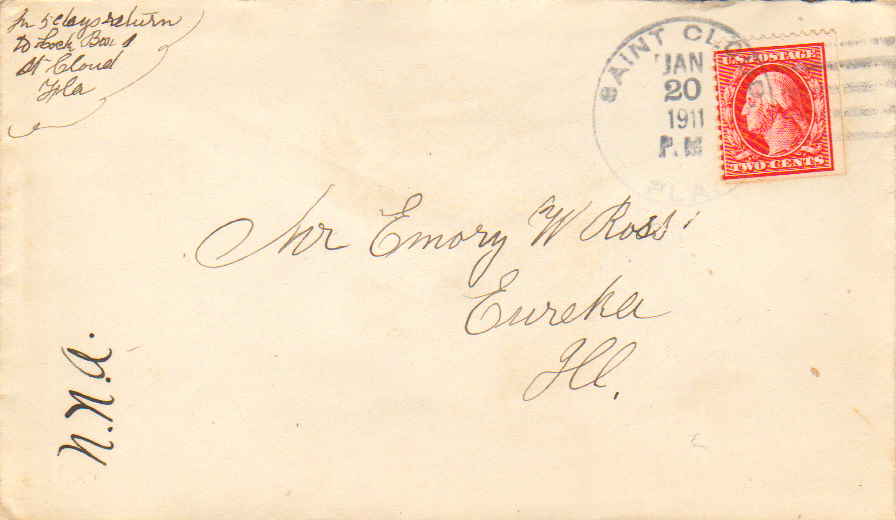 In 5 days return
to Lock Box 1
St Cloud
Fla
SAINT CLOUD
JAN
20
1911
P.M
FLA
U.S. POSTAGE
TWO CENTS
Mr Emory W Ross
Eureka
Ill.
N.N.A.